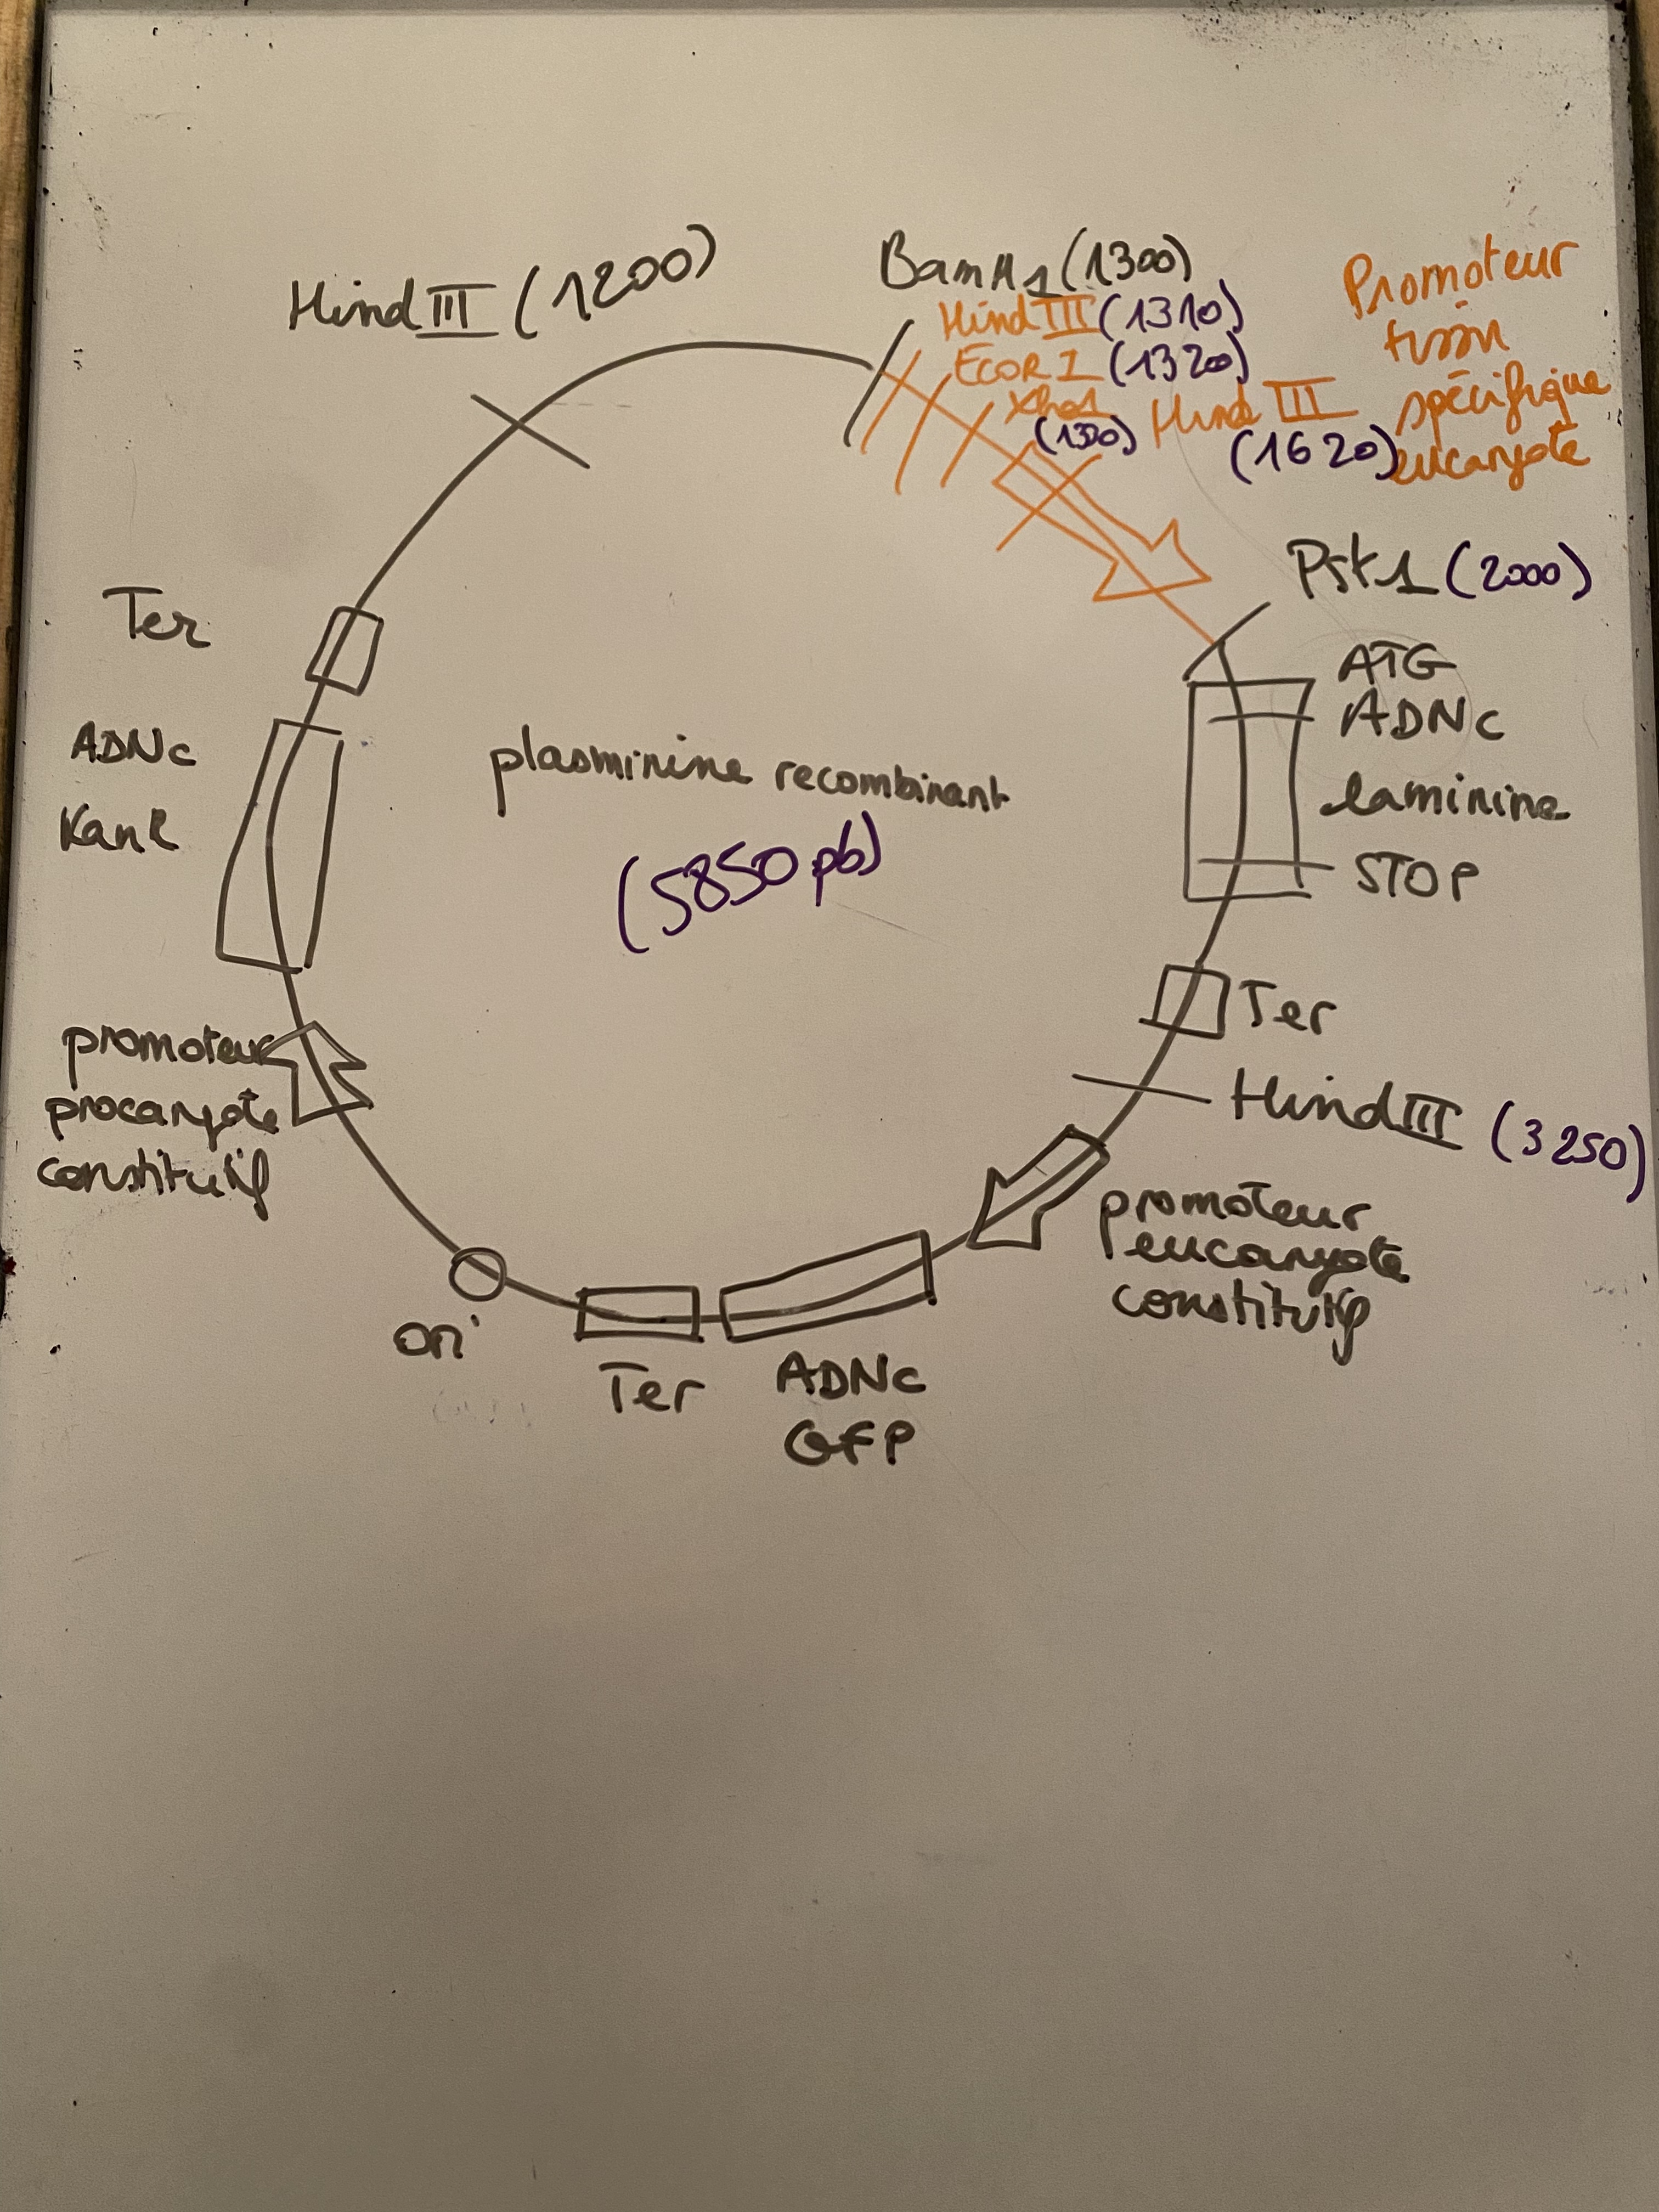 Hind III (1200)
BamH1 (1300)
Hind III (1310)
EcoR I (1320)
Xho1
Hind III
(1620)
Promoteur
tissu
spécifique
eucaryote
Pst1 (2000)
ATG
ADNc
laminine
STOP
Ter
Hind III (3250)
promoteur
eucaryote
constitutif
ADNc
GFP
Ter
ori
promoteur
procaryote
constitutif
ADNc
KanR
Ter
plasminine recombinant
(5850 pb)